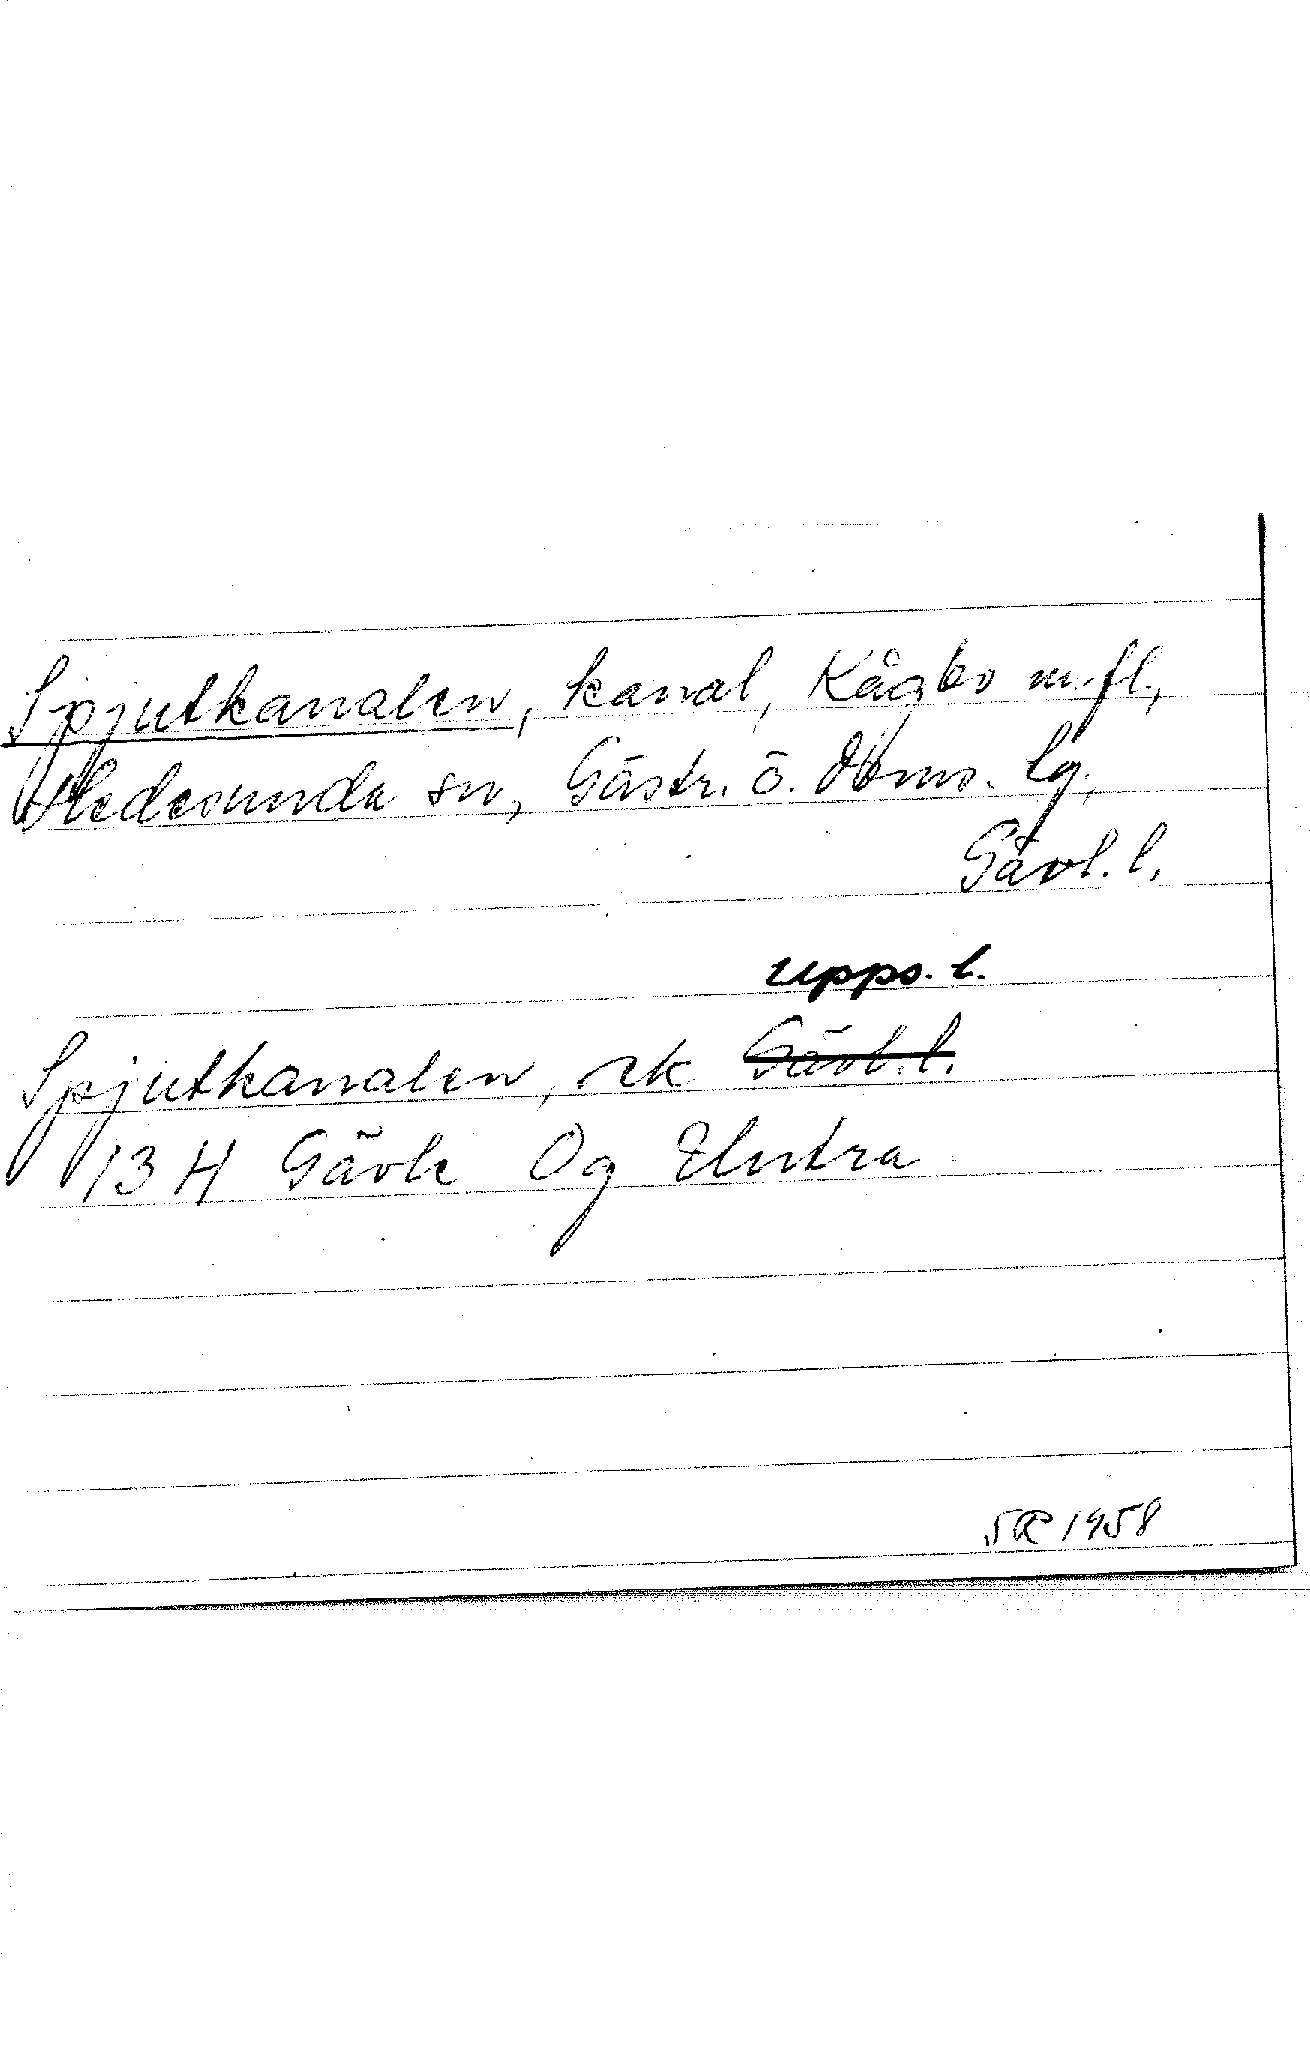 Spjutkanalen, kanal, Kågbo m.fl.,
Hedesunda sn, Gästr. ö. doms. lg,
Gävl. l.
Upps. l.
Spjutkanalen, rk Gävl. l.
13 H Gävle Og Elvtra
SR 1958